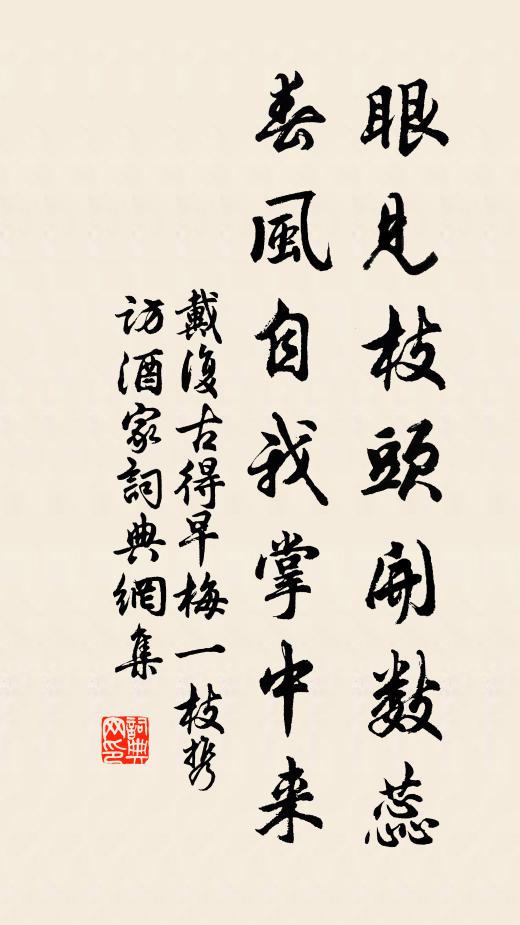 眼見枝頭開数蕊
春風自我掌中来
戴復古得早梅一枝携
訪酒家詞典網集
詞典網印